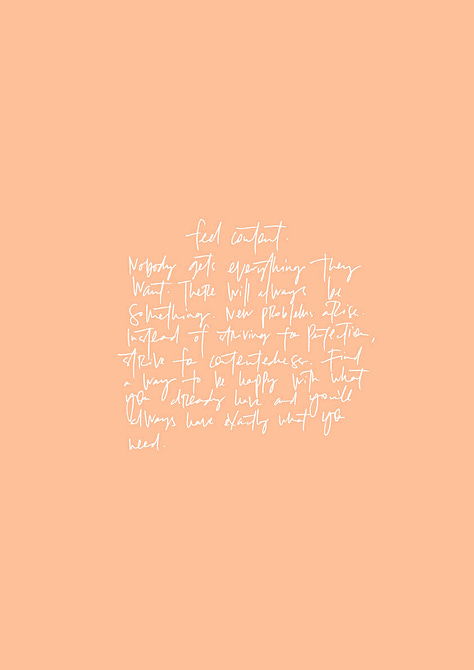 feel content.
Nobody gets everything they
want. There will always be
something. New problems arise.
Instead of striving for perfection,
strive for contentedness. Find
a way to be happy with what
you already have and you'll
always have exactly what you
need.